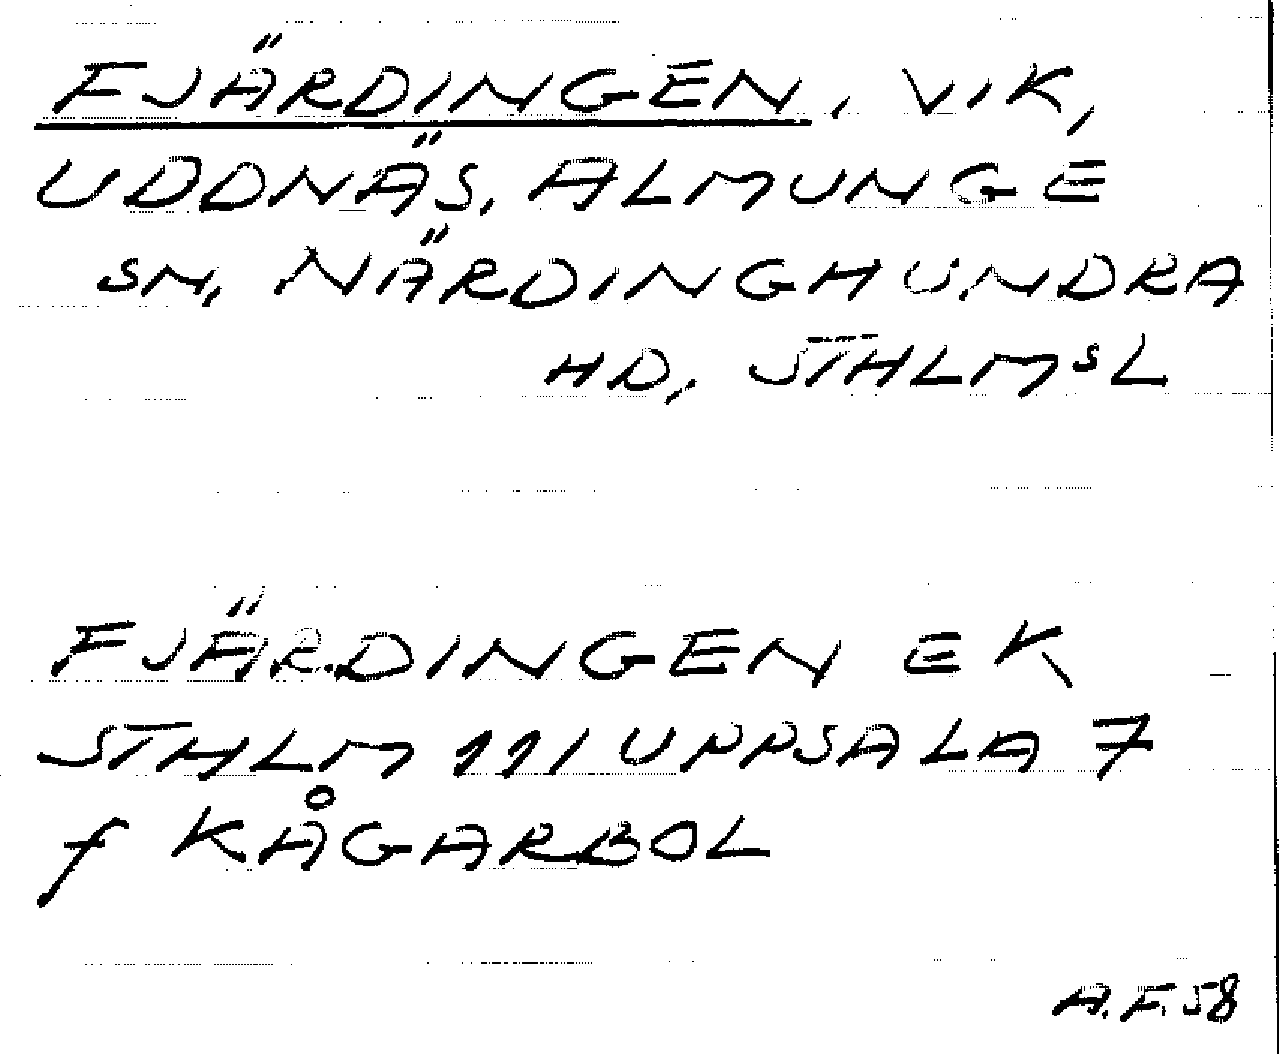 FJÄRDINGEN, VIK,
UDDNÄS, ALMUNGE
SN, NÄRDINGHUNDRA
HD, STHLMSL
FJÄRDINGEN EK
STHLM 111 UPPSALA 7
f KÅGARBOL
A.F.58